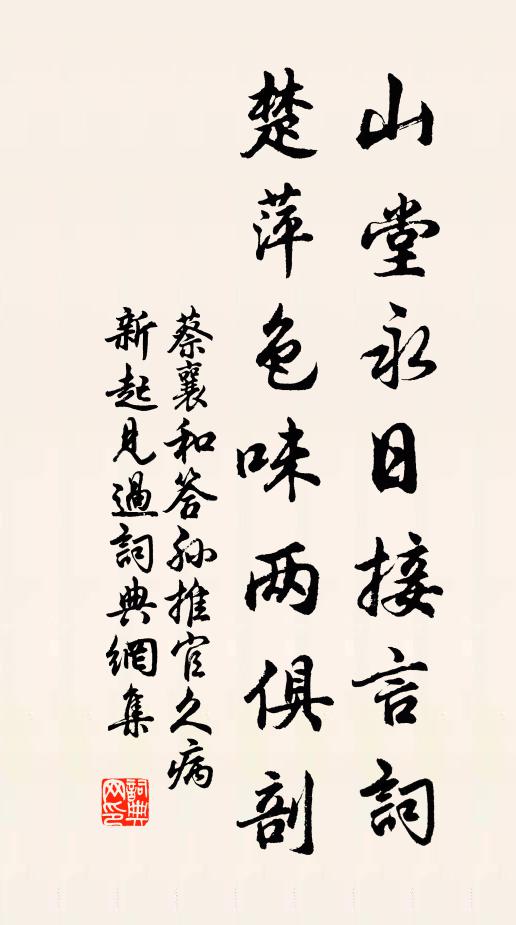 山堂永日接言詞
楚萍色味两俱剖
蔡襄和答孙推官久病
新起見過詞典網集
詞典网印